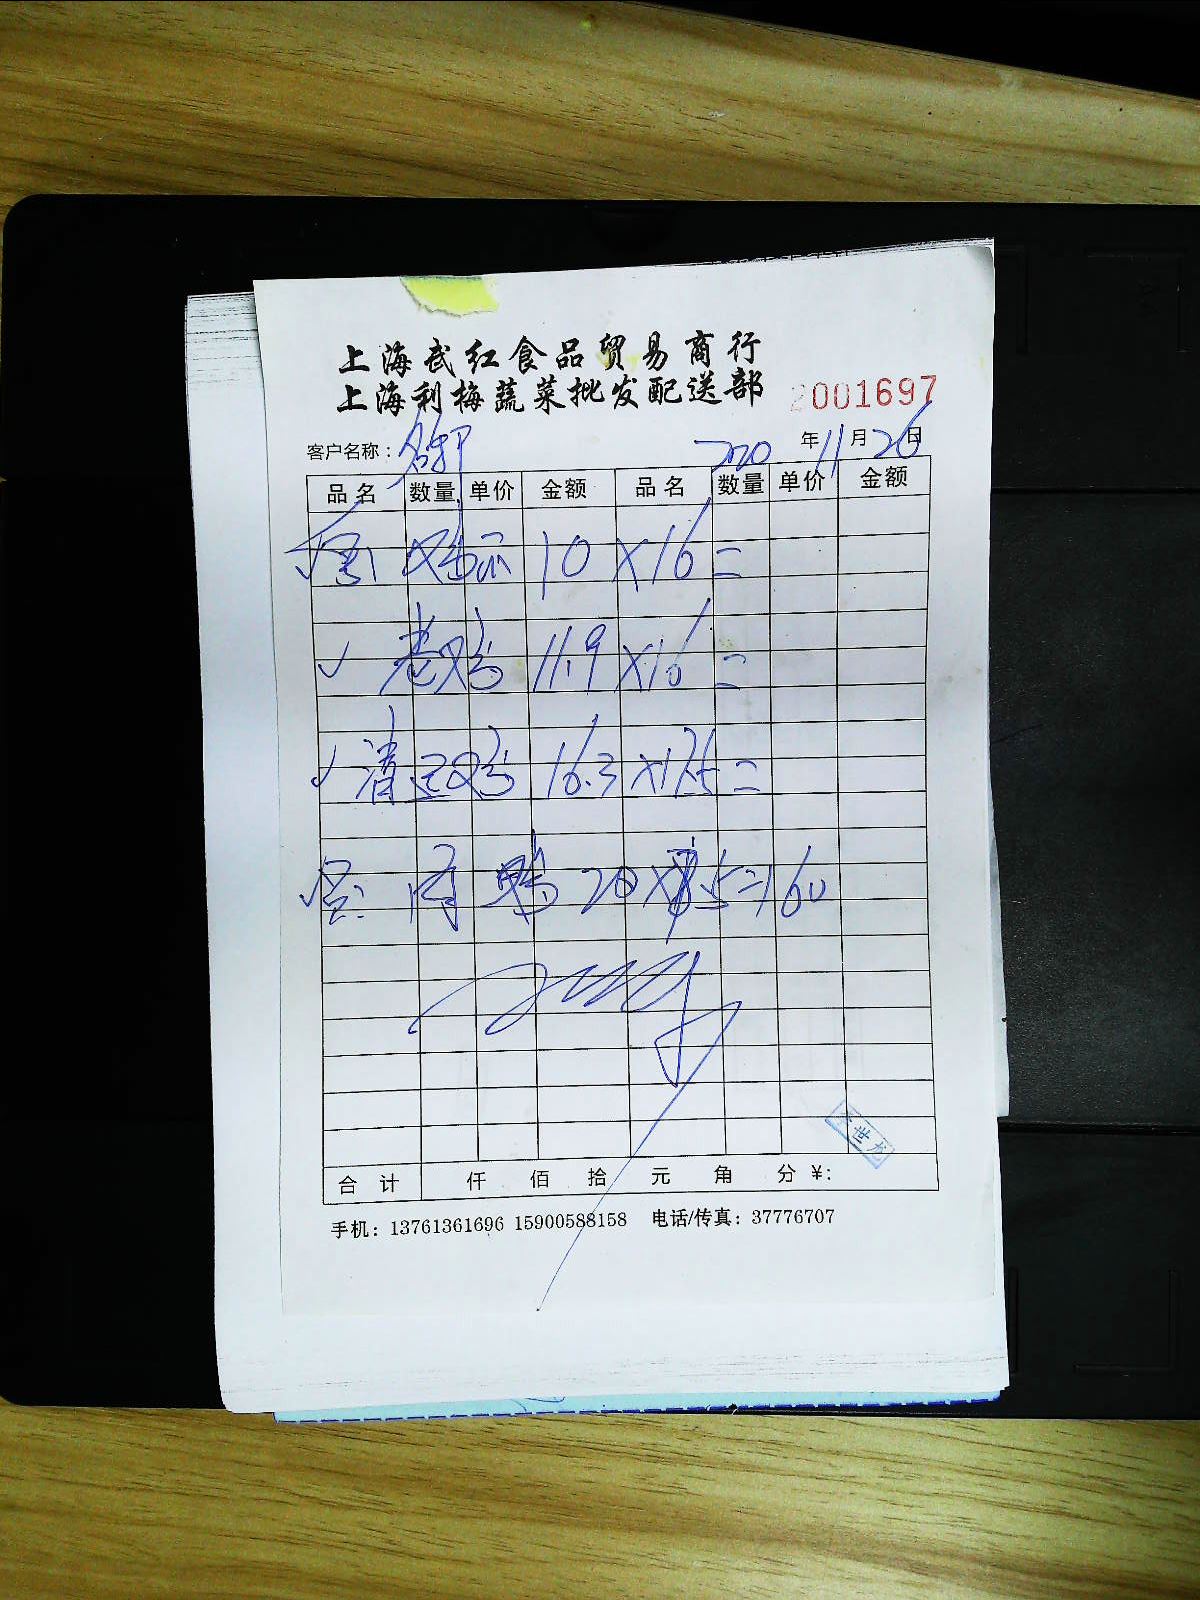 上海武红食品贸易商行
上海利梅蔬菜批发配送部
2001697
客户名称: 2020年11月26日
品名 数量 单价 金额 品名 数量 单价 金额
10×16=
✓ 老鸡 11.9×16=
✓ 清远鸡 16.3×17.5=
肉鸭 20× =160
合计 仟 佰 拾 元 角 分 ¥:
手机: 13761361696 15900588158 电话/传真: 37776707